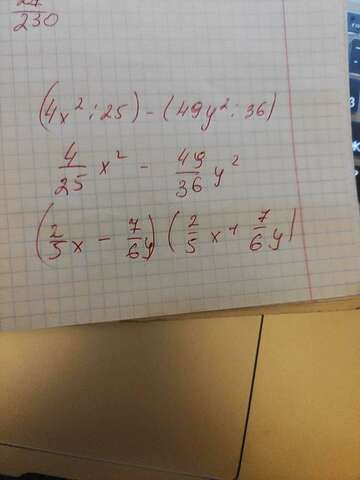 230
(4x²:25)-(49y²:36)
4/25 x² - 49/36 y²
(2/5 x - 7/6 y)(2/5 x + 7/6 y)